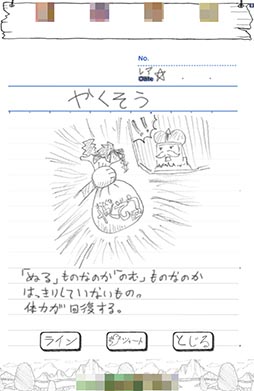 No.
レア
Date ☆ . .
やくそう
やくそう
「ぬる」ものなのか「のむ」ものなのか
はっきりしていないもの。
体力が回復する。
ライン
ショート
とじる